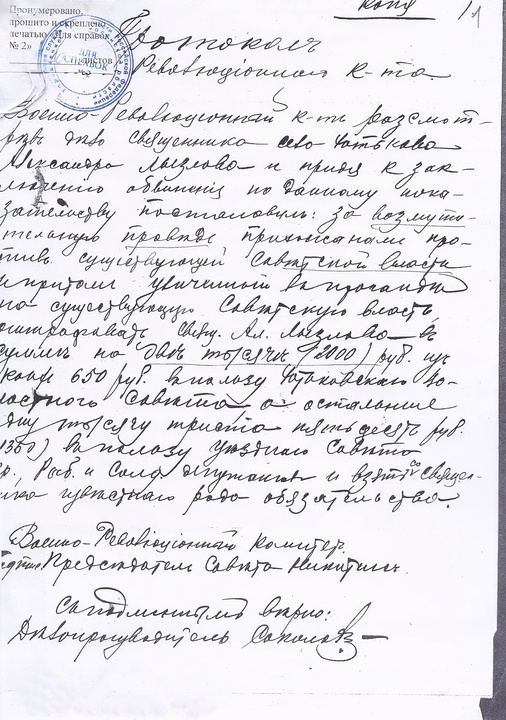 Копія
11
Пронумеровано,
прошито и скреплено
печатью «Для справок
№ 2»
листов
ДЛЯ
СПРАВОК
№2
Протоколъ
Революціоннаго к-та.
Военно-Революціонный к-тъ разсмот-
рѣвъ дѣло священника села
Александра Мызлова и придя к зак-
люченію обвиненія по данному пока-
зательству постановилъ: за возмути-
тельную правде прихожанами про-
тивъ существующей Совѣтской власти
и притомъ уличенный в пропаганде
на существующую Совѣтскую власть,
оштрафовать свящ. Ал. Мызлова въ
суммѣ на двѣ тысячи (2000) руб. из
коихъ 650 руб. в пользу во-
лостного Совѣта а остальные
одну тысячу триста пятьдесятъ руб.
1350) в пользу уѣзднаго Совѣта
Кр., Раб. и Солд. депутатовъ и взять со священ-
ника извѣстнаго рода обязательство.
Военно-Революціонный комитет.
Предсѣдатель Совѣта Никитинъ.
Съ подлиннымъ вѣрно:
Дѣлопроизводитель Соколовъ